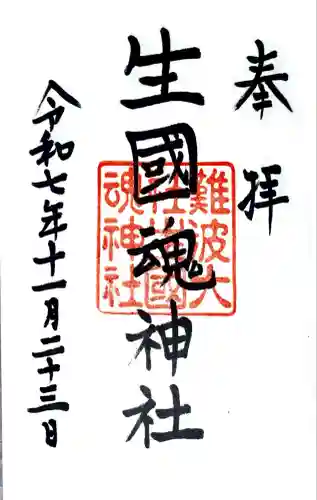 奉拝
生國魂神社
令和七年十一月二十三日
難波大
社生國
魂神社